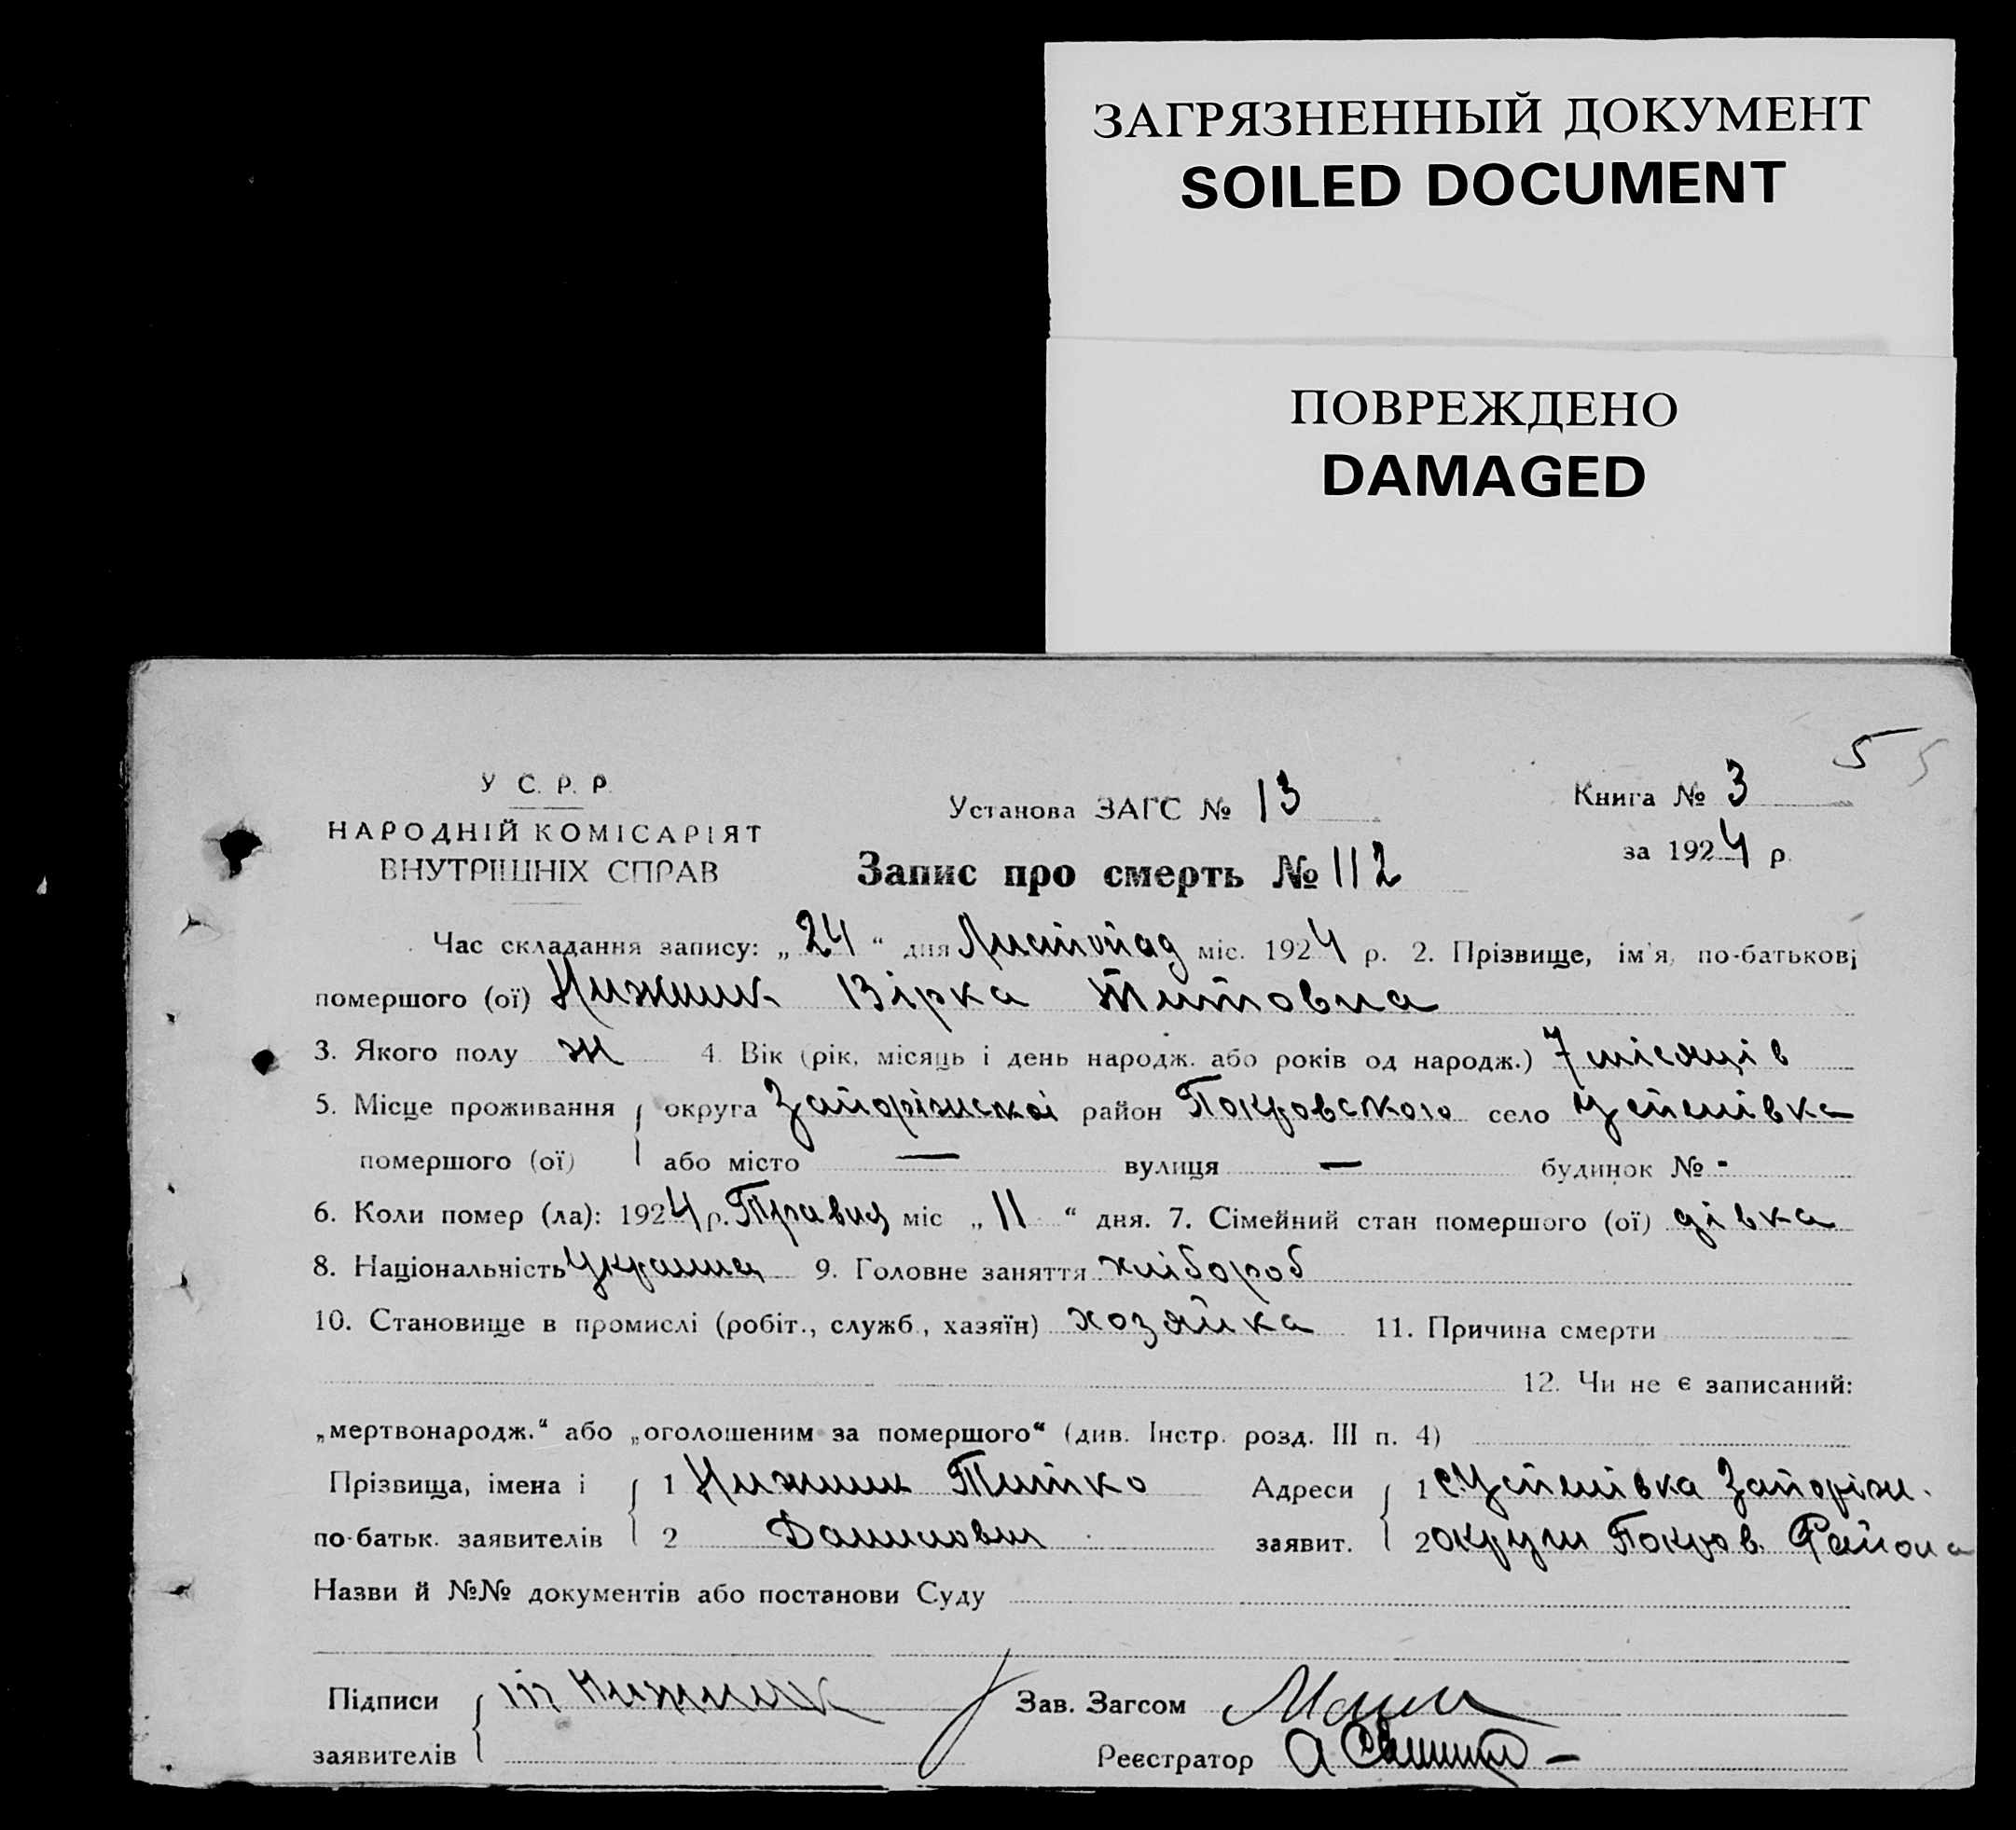 ЗАГРЯЗНЕННЫЙ ДОКУМЕНТ
SOILED DOCUMENT
ПОВРЕЖДЕНО
DAMAGED
5 5
У С. Р. Р.
НАРОДНІЙ КОМІСАРІЯТ
ВНУТРІШНІХ СПРАВ
Установа ЗАГС № 13
Книга № 3
за 1924 р.
Запис про смерть № 112
Час складання запису: „24“ дня Листопад міс. 1924 р. 2. Прізвище, ім'я, по-батькові
помершого (ої) Нижник Вірка Титовна
3. Якого полу ж 4. Вік (рік, місяць і день народж. або років од народж.) 7 місяців
5. Місце проживання округа Запоріжскої район Покровского село Успенівка
помершого (ої) або місто — вулиця — будинок № -
6. Коли помер (ла): 1924 р. міс „11“ дня. 7. Сімейний стан помершого (ої) дівка
8. Національність 9. Головне заняття хлібороб
10. Становище в промислі (робіт., служб., хазяїн) хозяйка 11. Причина смерти
12. Чи не є записаний:
„мертвонародж.“ або „оголошеним за помершого“ (див. Інстр. розд. III п. 4)
Прізвища, імена і 1 Нижник Титко Адреси 1 с Успенівка Запоріж.
по-батьк. заявителів 2 заявит. 2 округи Покров. Района
Назви й №№ документів або постанови Суду
Підписи Нижник Зав. Загсом
заявителів Реєстратор